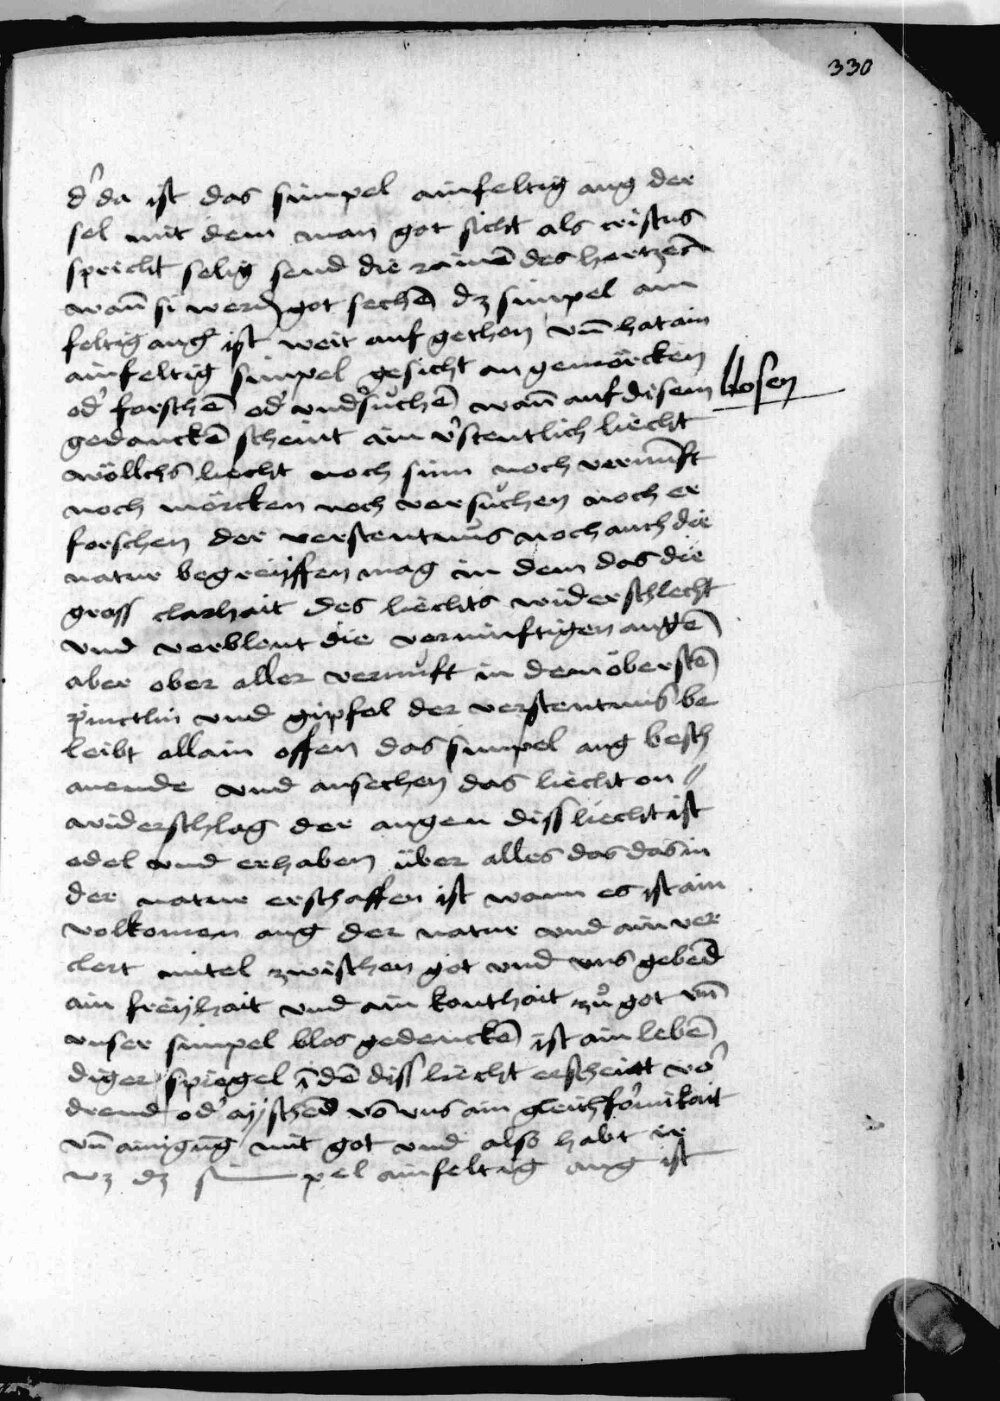 330
d' da ist das simpel ainfeltig aug der
sel mit dem man got sicht als cristus
spricht selig send die rainē des hertzen
wañ si werdē got sechē dz simpel ain
feltig aug ist weit auf gethon vñ hat ain
ainfeltig simpel gesicht an gemörcken
od' forschē od' vnd'sůchē wañ auf disem blosen
gedanckē scheint ain v'stentlich liecht
wöllchs liecht noch sinn noch vernũft
noch mörcken noch versůchen noch er
forschen der verstentnus noch auch die
natur begreiffen mag in dem das die
gross clarhait des liechts widerschlecht
vnd verblent die vernünftigen augē
aber ober aller vernuft in dem öberstē
pünctlin vnd gipfel der verstentnus be
leibt allain offen das simpel aug besch
auende vnd ansechen das liecht on
widerschlag der augen diss liecht ist
edel vnd erhaben über alles das das in
der natur erschaffen ist wann es ist ain
volkomen aug der natur vnd ain ver
clert mitel zwischen got vnd vns gebēd
ain freyhait vnd ain konthait zů got vñ
vnser simpel blos gedenckē ist ain lebē
diger spiegel ī dē diss liecht erscheint vo'
drend od' ayschēd vō vns ain gleichfōrmikait
vñ ainigūg mit got vnd also habt ir
wz dz simpel ainfeltig aug ist